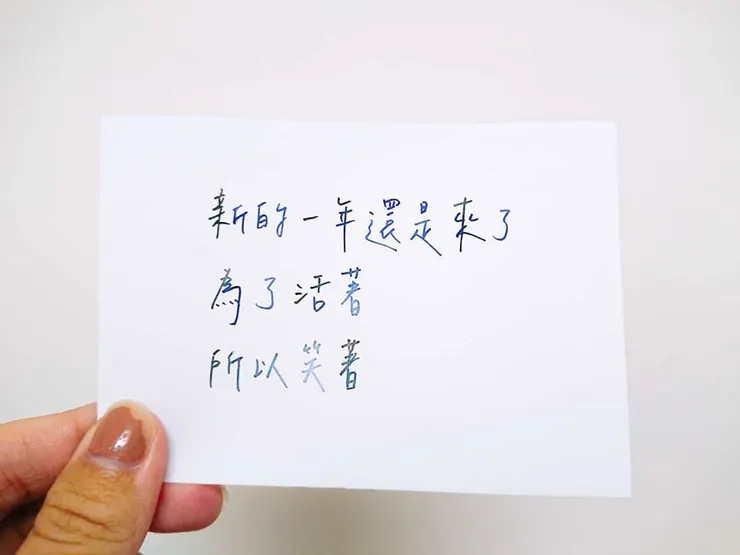 新的一年還是來了
為了活著
所以笑著